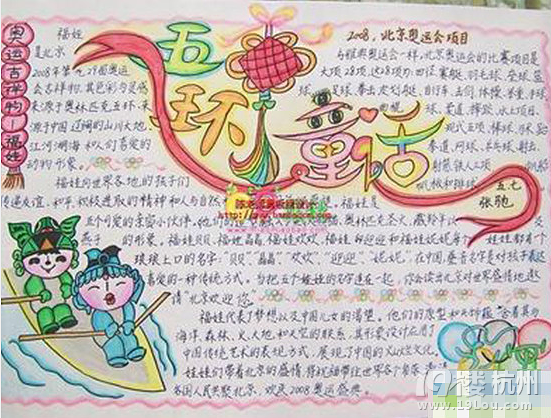 奥运吉祥物
福娃
五环
童话
福娃
是北京
2008年第 29届奥运
会吉祥物,其色彩与灵感
来源于奥林匹克五环,来
源于中国辽阔的山川大地、
江河湖海和人们喜爱的
动物形象。
福娃向世界各地的孩子们
传递友谊、和平、积极进取的精神和人与自然
五个可爱的亲密小伙伴,他们的
燕子 的形象。福娃贝贝、福娃晶晶、福娃欢欢、福娃迎迎和福娃妮妮
琅琅上口的名字:"贝贝"、"晶晶"、"欢欢"、"迎迎"、"妮妮",在中国,叠音名字是对孩子表达
喜爱的一种传统方式。当把五个福娃的名字连在一起,你会读出北京对世界盛情地邀
请"北京欢迎您"。
福娃代表了梦想以及中国人民的渴望。他们的原型和头饰蕴含着其与
海洋、森林、火、大地和天空的联系,其形象设计应用了
中国传统艺术的表现方式,展现了中国的灿烂文化。
娃娃们带着北京的盛情,将祝福带往世界各个角落,邀请
各国人民共聚北京,欢庆2008奥运盛典。
2008,北京奥运会项目
与雅典奥运会一样,北京奥运会的比赛项目是
大项28项,这28项为:田径、赛艇、羽毛球、垒球、篮
球、足球、拳击、皮划艇、自行车、击剑、体操、举重、手球
曲棍球、柔道、摔跤、水上项目、
现代五项、棒球、马术、跆
拳道、网球、乒乓球、射击、
射箭、铁人三项
帆板和排球
五七
张驰
19楼 杭州
www.19lou.com